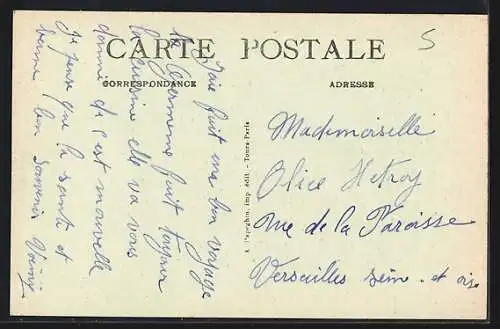 CARTE POSTALE
5
CORRESPONDANCE
ADRESSE
J'aie fait un bon voyage
la Germaine fait toujour
la cuisine elle va vous
donné de c'est nouvelle
Je pense que la santé et
bonne bon souvenir
A. Papeghin, imp. édit. - Tours-Paris
Mademoiselle
Olice Hetroy
rue de la Paroisse
Versailles Sein et ois